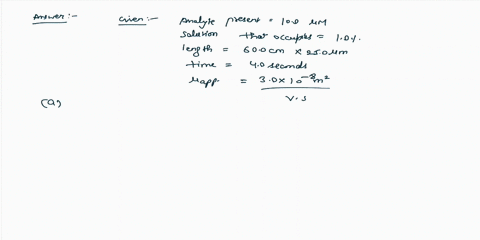 Answer:- Given:- Analyte present = 10.0 μM
solution that occupies = 1.0%.
length = 60.0 cm × 25.0 μm
time = 4.0 seconds
μapp = 3.0 × 10⁻⁸ m²
V.s
(a)